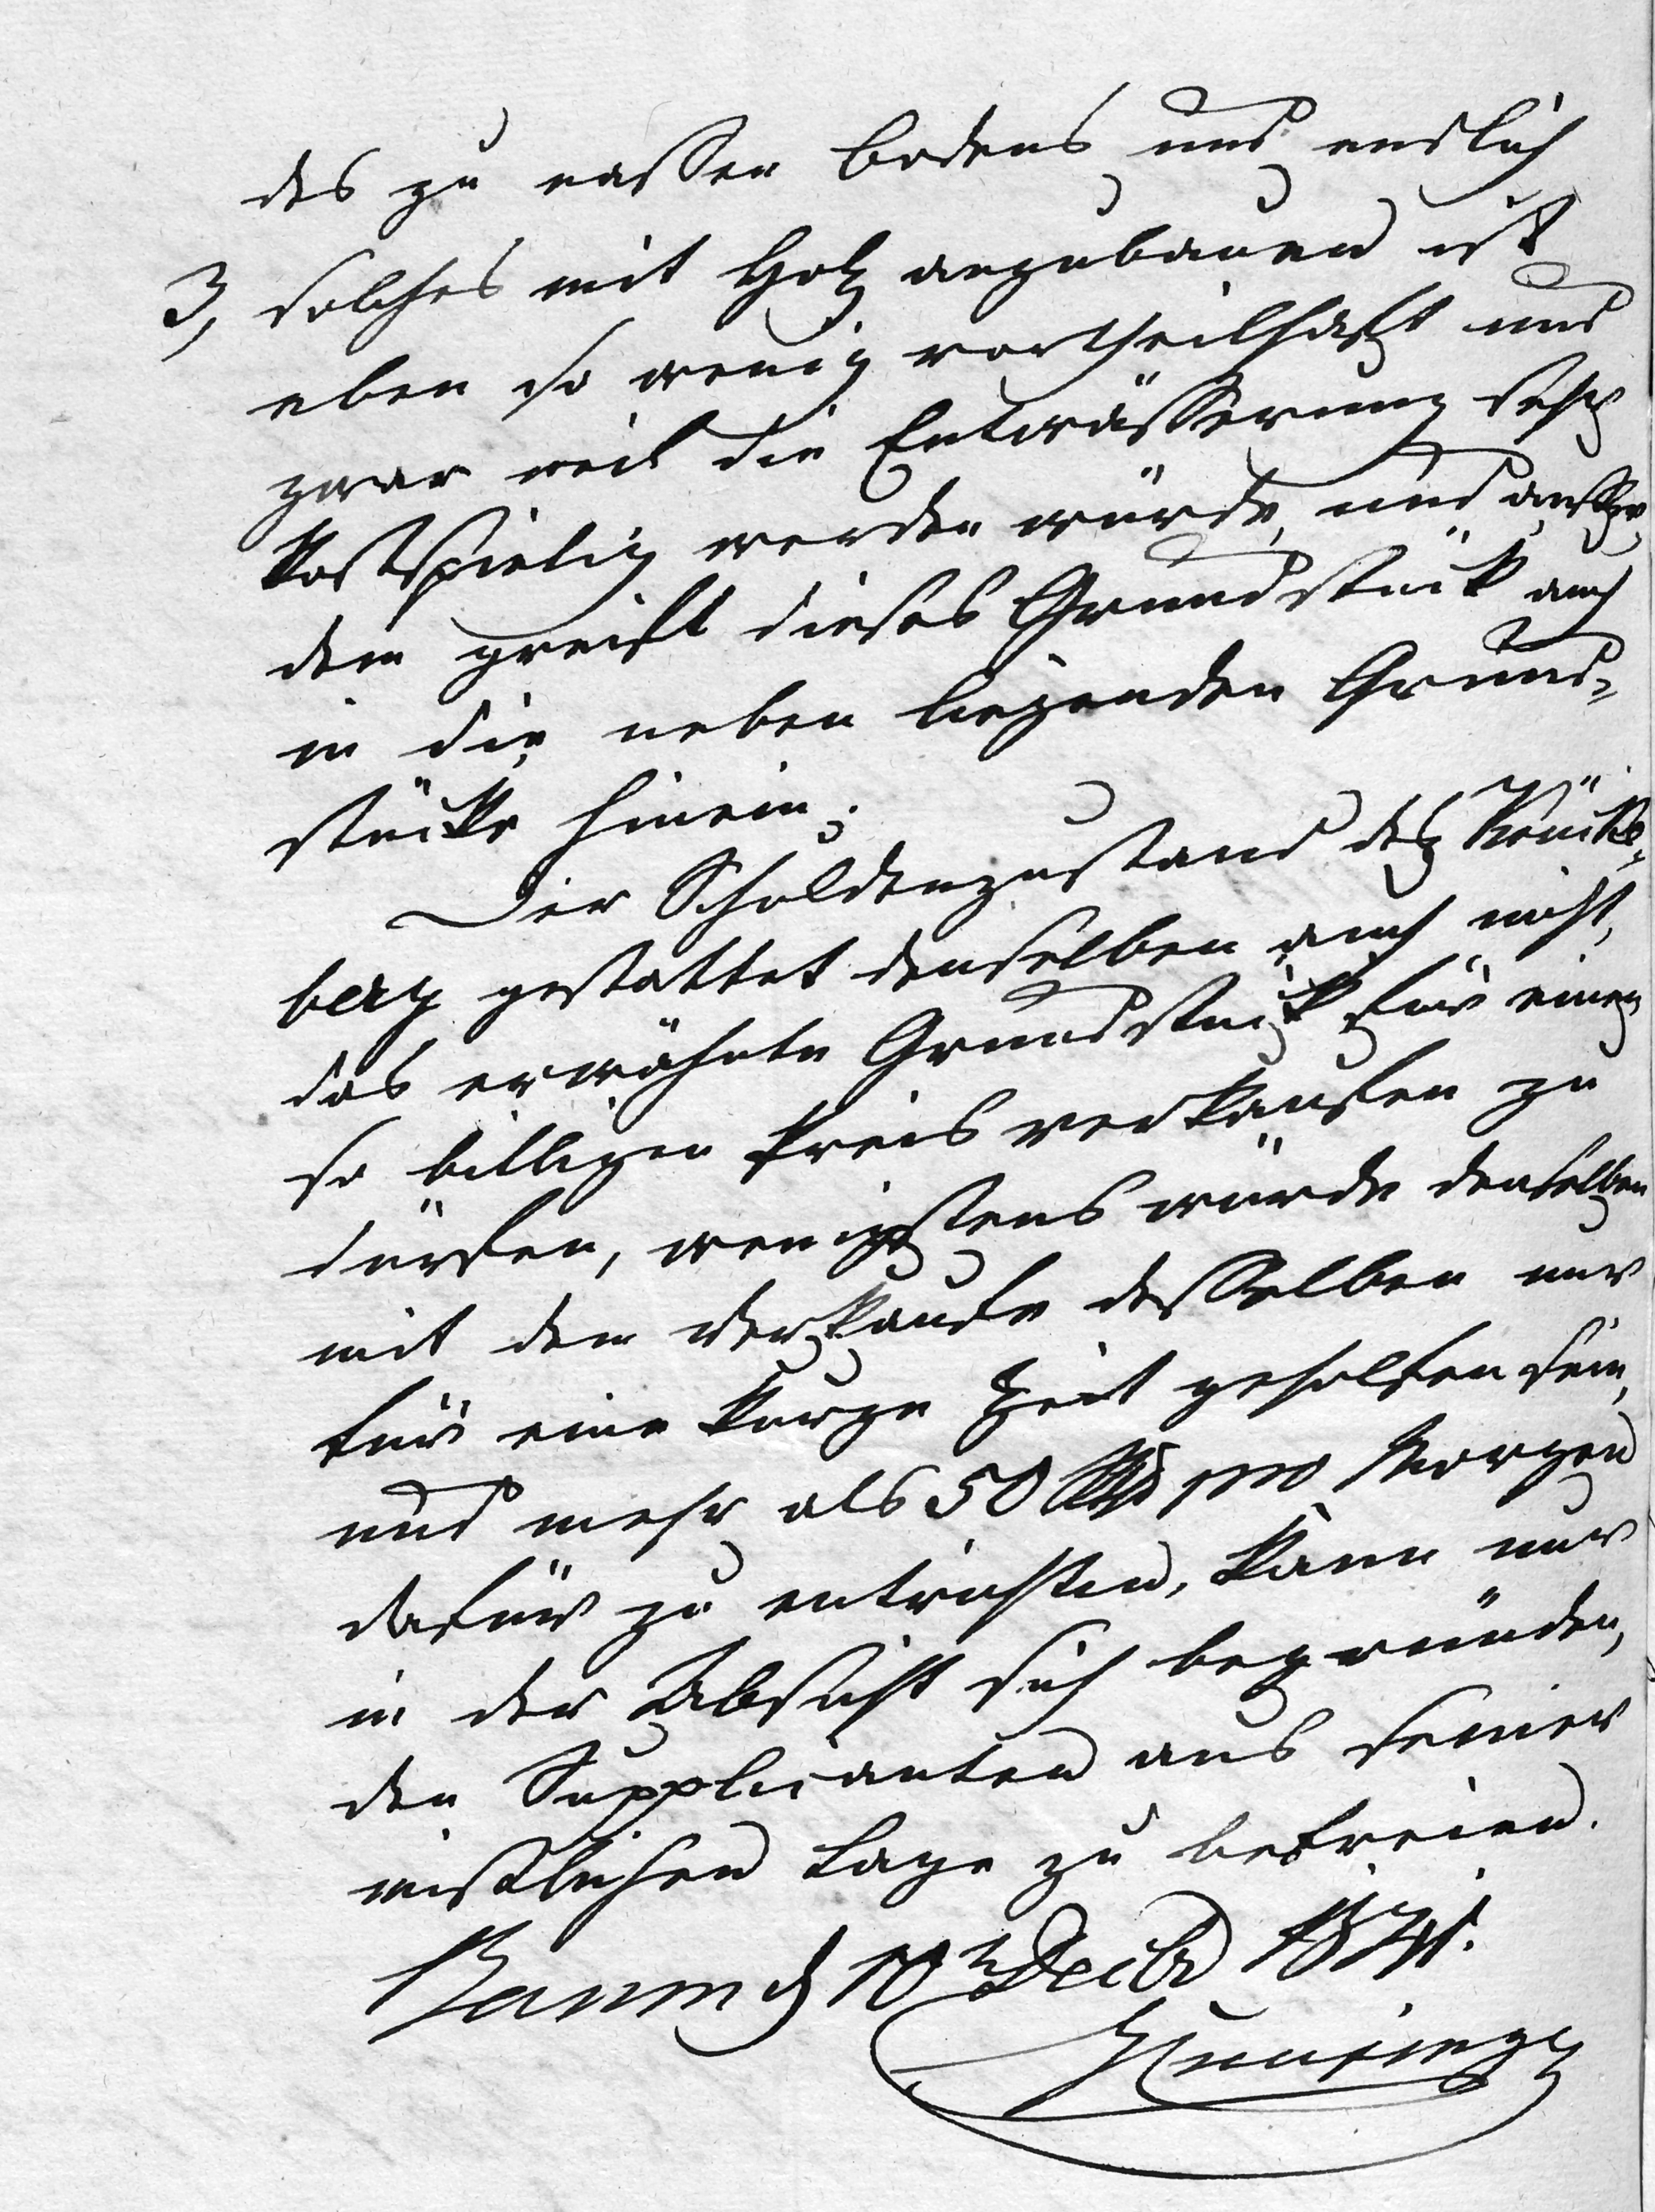 des zu nassen Bodens und endlich
3, solches mit Holz anzubauen ist
eben so wenig vortheilhaft und
zwar weil die Entwässerung sehr
kostspielig werden würde, und ausser
dem greift dieses Grundstück auch
in die neben liegenden Grund-
stücke hinein;
Der Schuldenzustand des
berg gestattet denselben auch nicht,
das erwähnte Grundstück für einen
so billigen Preis verkaufen zu
dürfen, wenigstens würde denselben
mit dem Verkaufe desselben nur
für eine kurze Zeit geholfen sein,
und mehr als 50 pro Morgen
dafür zu entrichten, kann nur
in der Absicht sich begründen,
den Supplicanten aus seiner
mißlichen Lage zu befreien.
d 10t Decbr 1841.